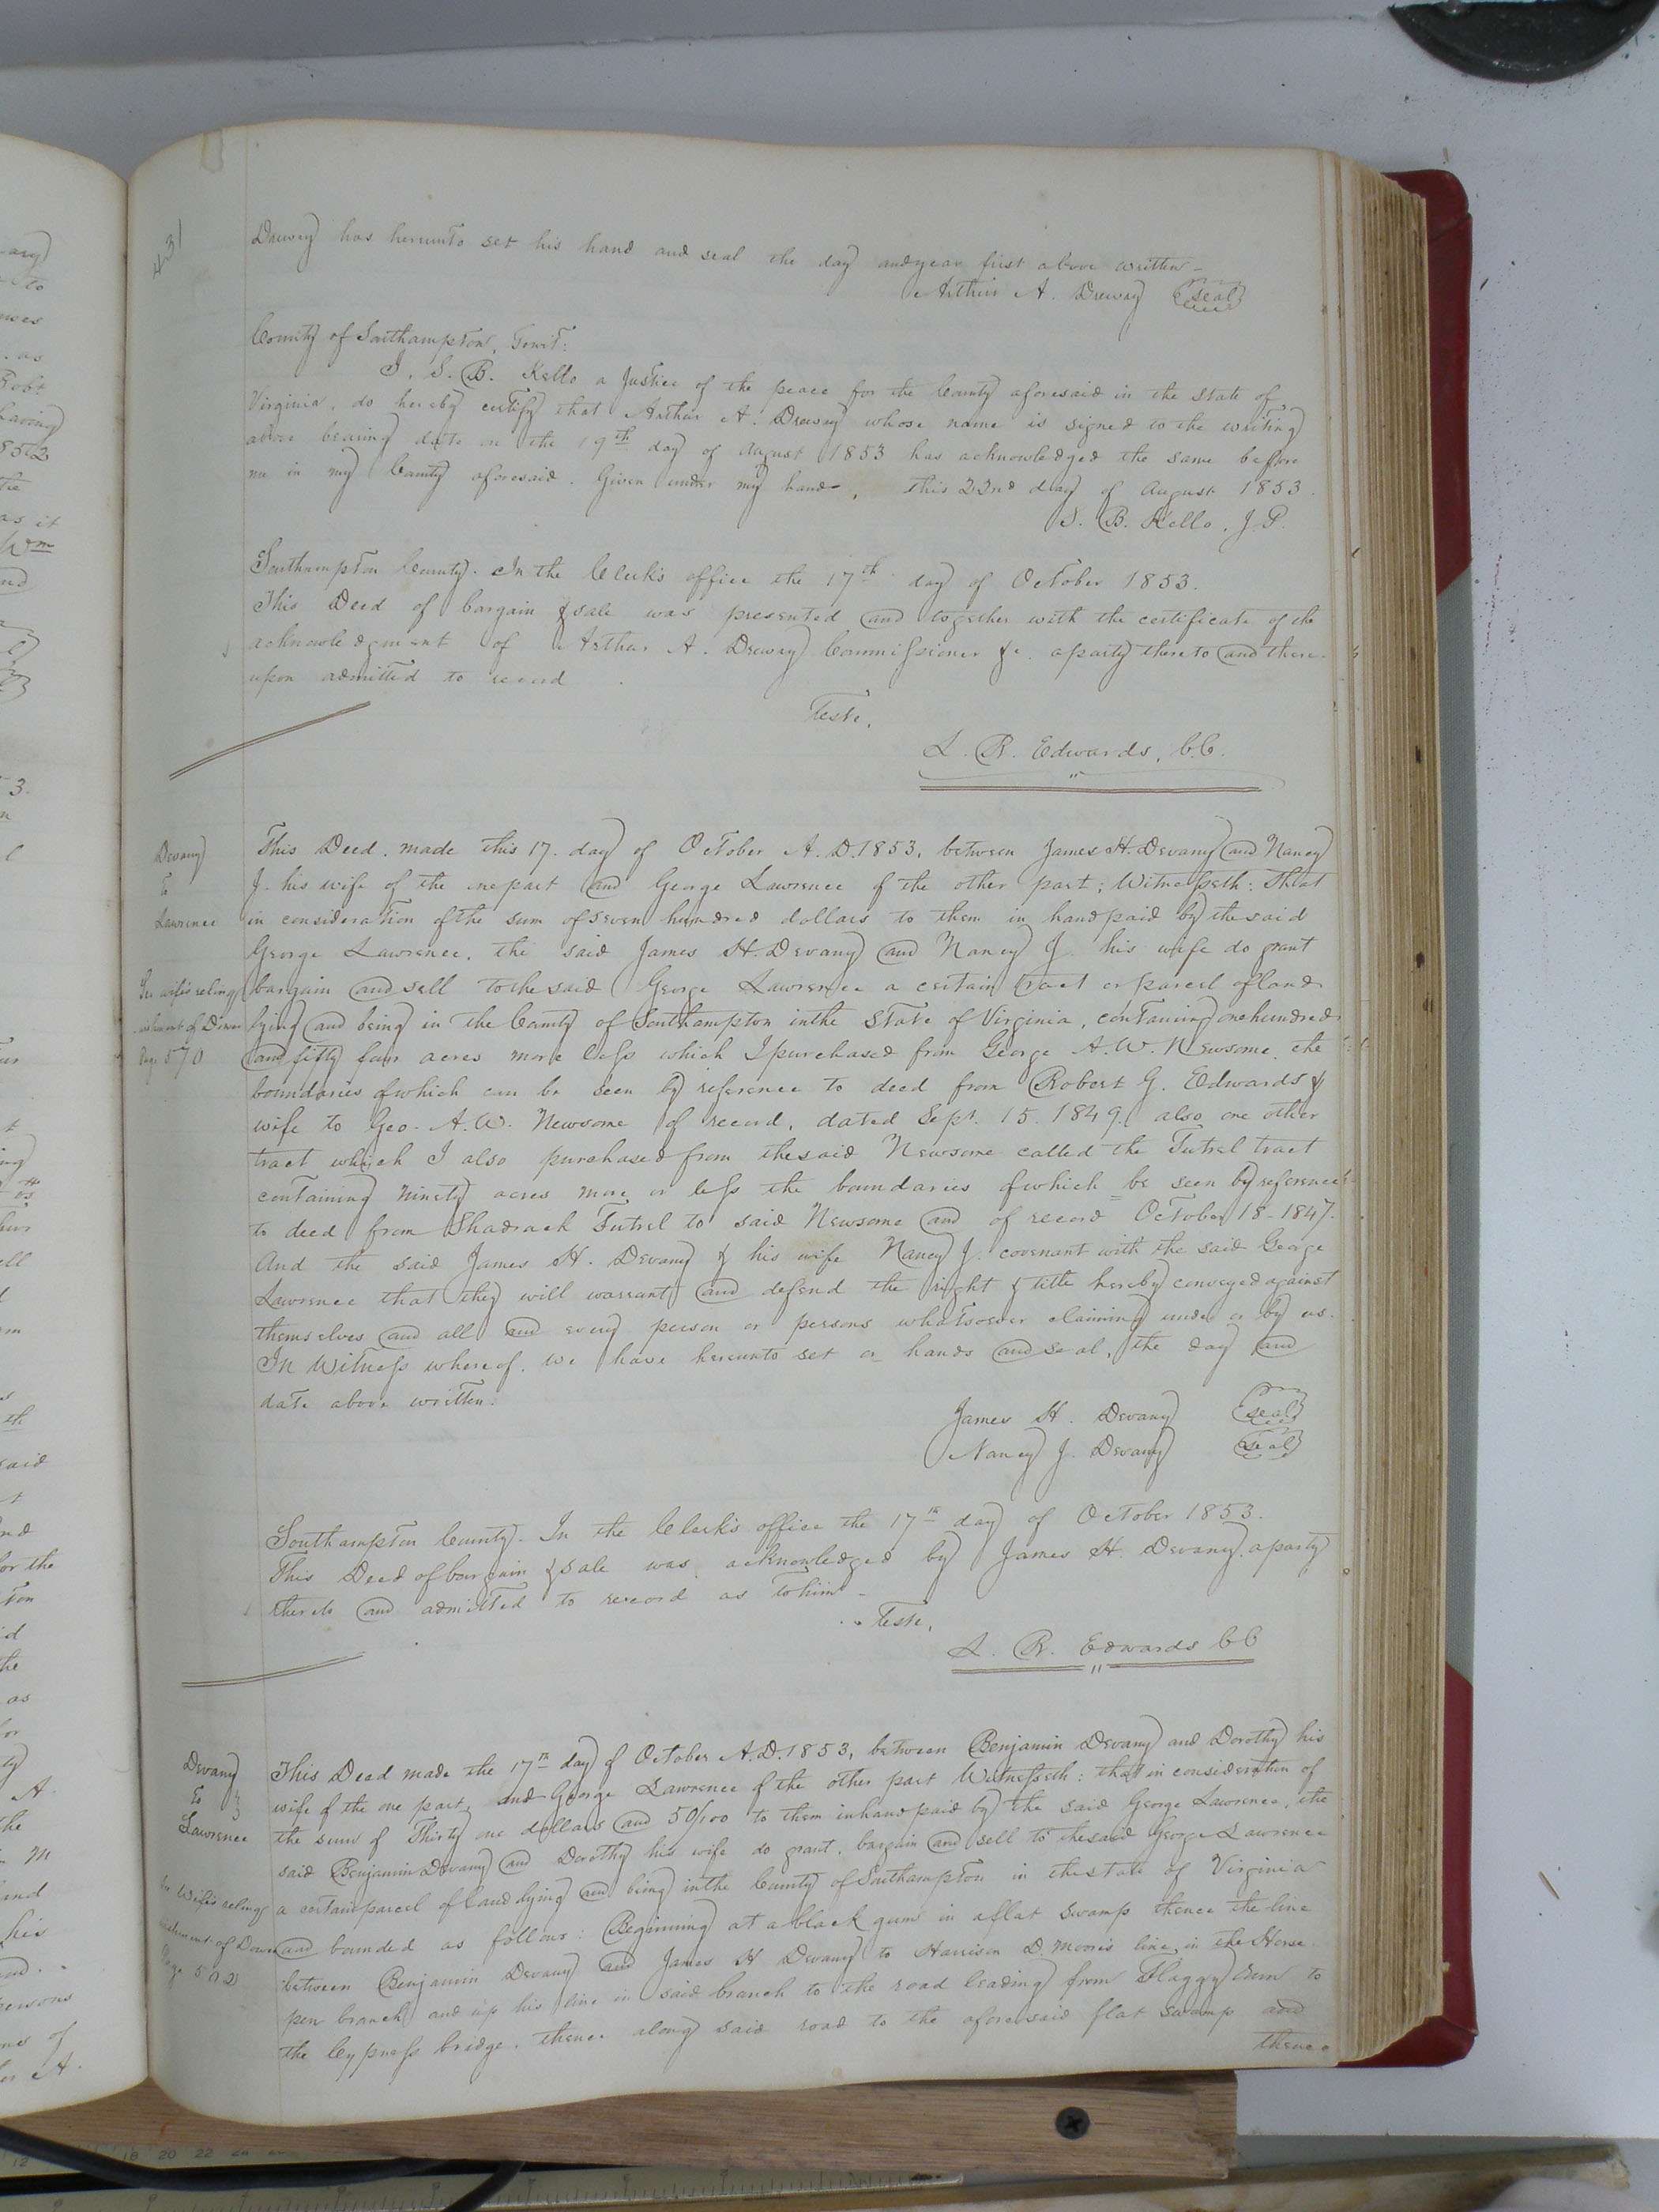 431
Drewry has hereunto set his hand and seal the day and year first above written
Arthur A. Drewry (seal)
County of Southampton, Towit:
I, S. B. Kello a Justice of the peace for the County aforesaid in the state of
Virginia, do hereby certify that Arthur A. Drewry whose name is signed to the writing
above bearing date on the 19th day of August 1853 has acknowledged the same before
me in my County aforesaid. Given under my hand, this 22nd day of August 1853.
S. B. Kello, J.P.
Southampton County. In the Clerk's office the 17th day of October 1853.
This Deed of bargain & sale was presented and together with the certificate of the
acknowledgment of Arthur A. Drewry Commissioner &c. a party thereto and there-
upon admitted to record
Teste,
L. R. Edwards, C.C.
Devany
To
Lawrence
This Deed, made this 17. day of October A.D. 1853, between James H. Devany and Nancy
J. his wife of the one part and George Lawrence of the other part; Witnesseth: That
in consideration of the sum of seven hundred dollars to them in hand paid by the said
George Lawrence, the said James H. Devany and Nancy J. his wife do grant
bargain and sell to the said George Lawrence a certain tract or parcel of land
lying and being in the County of Southampton in the State of Virginia, containing one hundred
and fifty four acres more less which I purchased from George A. W. Newsome, the
boundaries of which can be seen by reference to deed from Robert G. Edwards &
wife to Geo. A. W. Newsome of record, dated Sept. 15. 1849. also one other
tract which I also purchased from the said Newsome called the Futrel tract
containing ninety acres more or less the boundaries of which be seen by reference
to deed from Shadrach Futrel to said Newsome and of record October 18-1847.
And the said James H. Devany & his wife Nancy J. covenant with the said George
Lawrence that they will warrant and defend the right & title hereby conveyed against
themselves and all and every person or persons whatsoever claiming under or by us.
In Witness whereof, we have hereunto set or hands and seal, the day and
date above written.
For wife's relinq
uishment of Dower
Page 570
James H. Devany (seal)
Nancy J. Devany (seal)
Southampton County. In the Clerk's office the 17th day of October 1853.
This Deed of bargain & sale was acknowledged by James H. Devany, a party
thereto and admitted to record as to him
Teste,
L. R. Edwards CC
Devany
To
Lawrence
This Deed made the 17th day of October A.D. 1853, between Benjamin Devany and Dorothy his
wife of the one part, and George Lawrence of the other part Witnesseth: that in consideration of
the sum of Thirty one dollars and 50/100 to them in hand paid by the said George Lawrence, the
said Benjamin Devany and Dorothy his wife do grant, bargain and sell to the said George Lawrence
a certain parcel of land lying and being in the County of Southampton in the state of Virginia
and bounded as follows: Beginning at a black gum in a flat swamp thence the line
between Benjamin Devany and James H Devany to Harrison D. Moore's line in the Horse
pen branch and up his line in said branch to the road leading from Flaggy Run to
the Cypress bridge, thence along said road to the aforesaid flat swamp and
thence
For Wife's relinq
uishment of Dower
Page 502